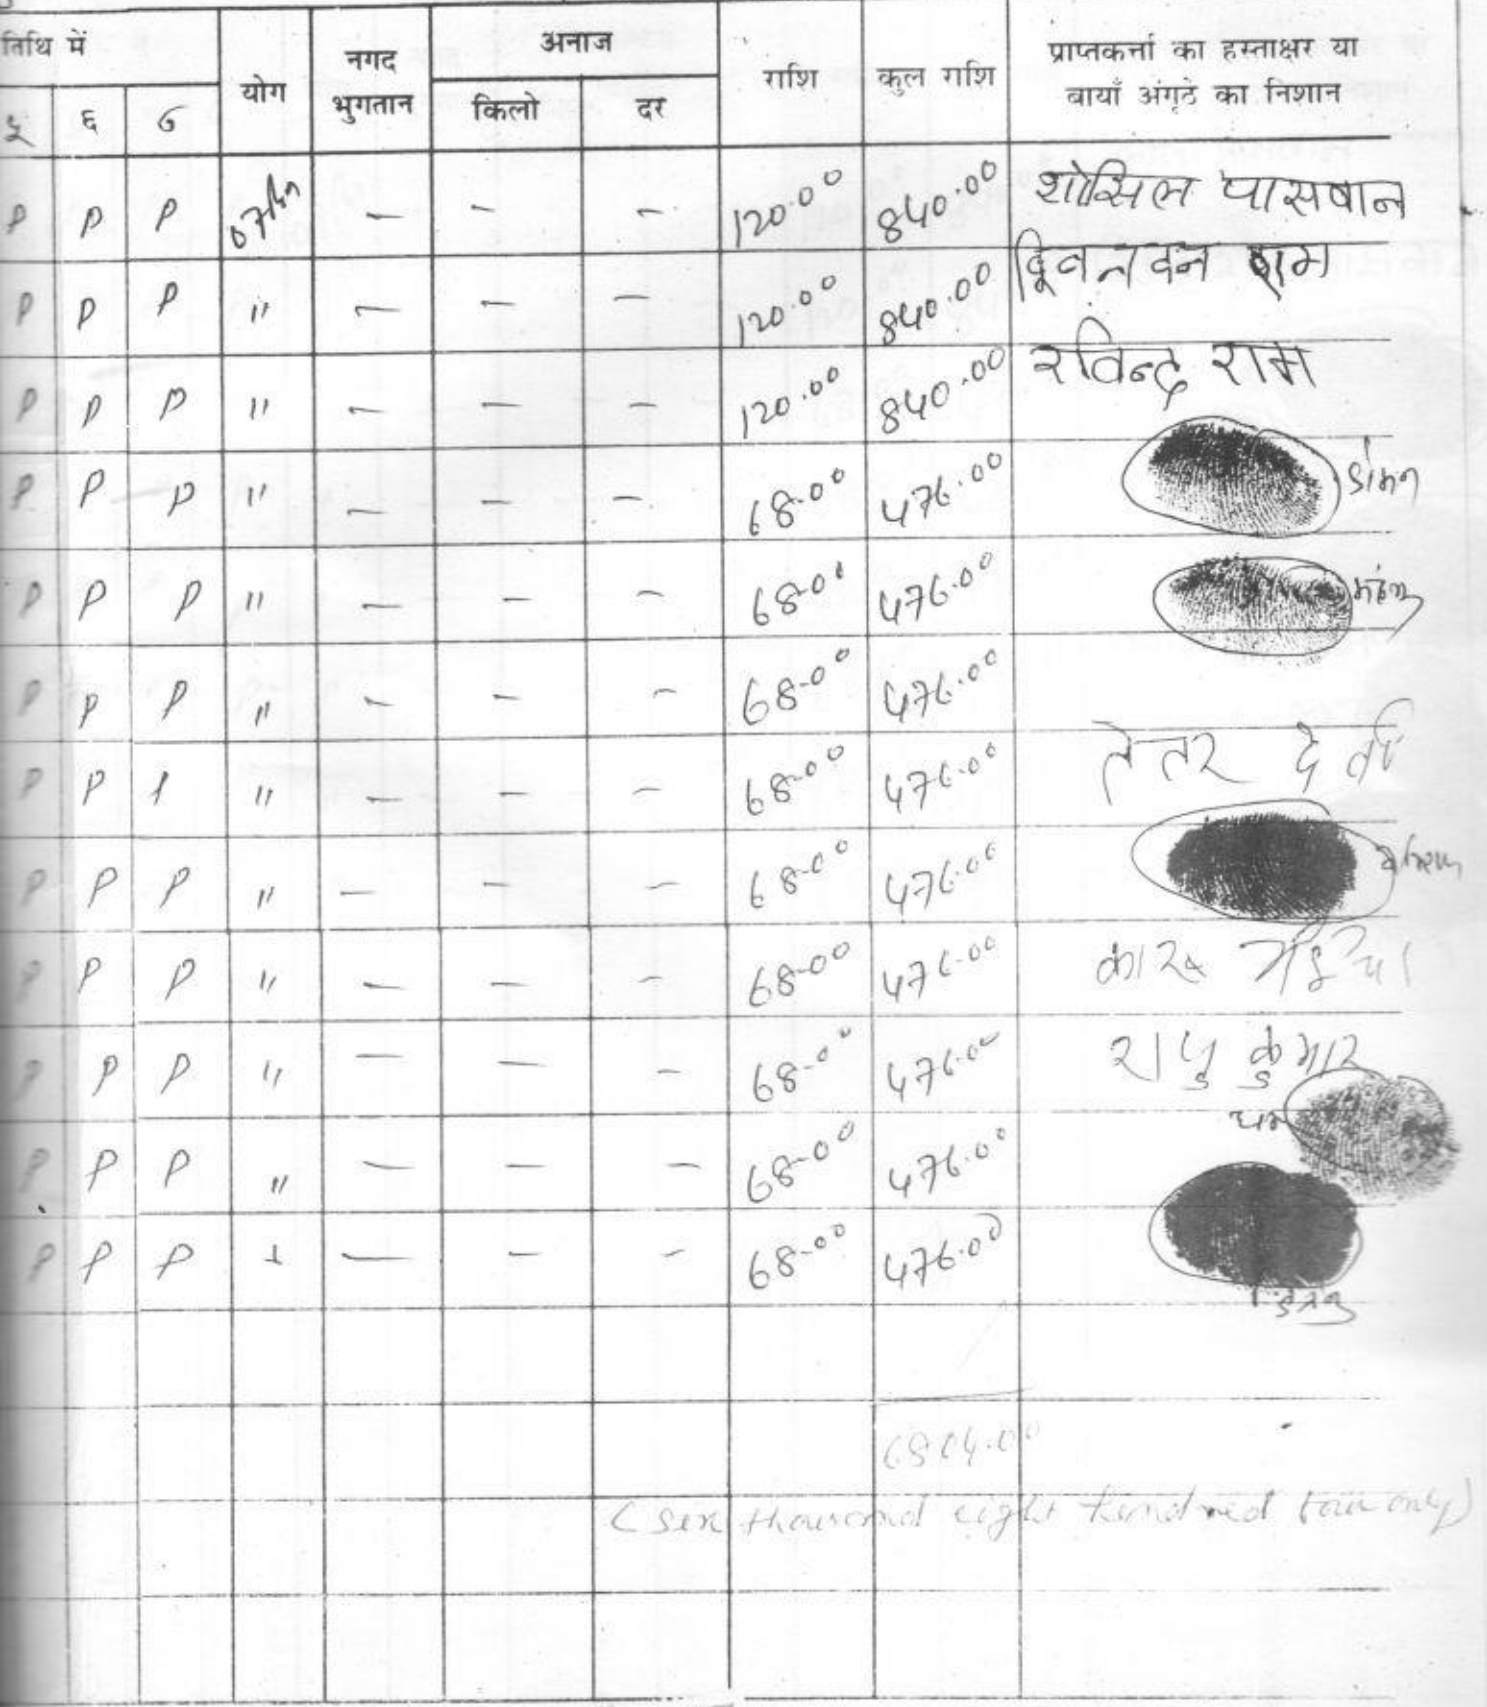 तिथि में योग नगद भुगतान अनाज राशि कुल राशि प्राप्तकर्त्ता का हस्ताक्षर या
बायाँ अंगूठे का निशान
५ ६ ७ किलो दर
P P P — - — 120.00 840.00 पासवान
P P P " — — — 120.00 840.00 राम
P P P " — — — 120.00 840.00 रविन्द्र राम
P P P " — — — 68.00 476.00 डोमन
P P P " — — — 68.00 476.00
P P P " — — — 68.00 476.00
P P P " — — — 68.00 476.00 तेतर देवी
P P P " — — — 68.00 476.00
P P P " — — — 68.00 476.00
P P P " — — — 68.00 476.00 राजु कुमार
P P P " — — — 68.00 476.00
P P P — — — 68.00 476.00
6804.00
(six thousand eight hundred four only)